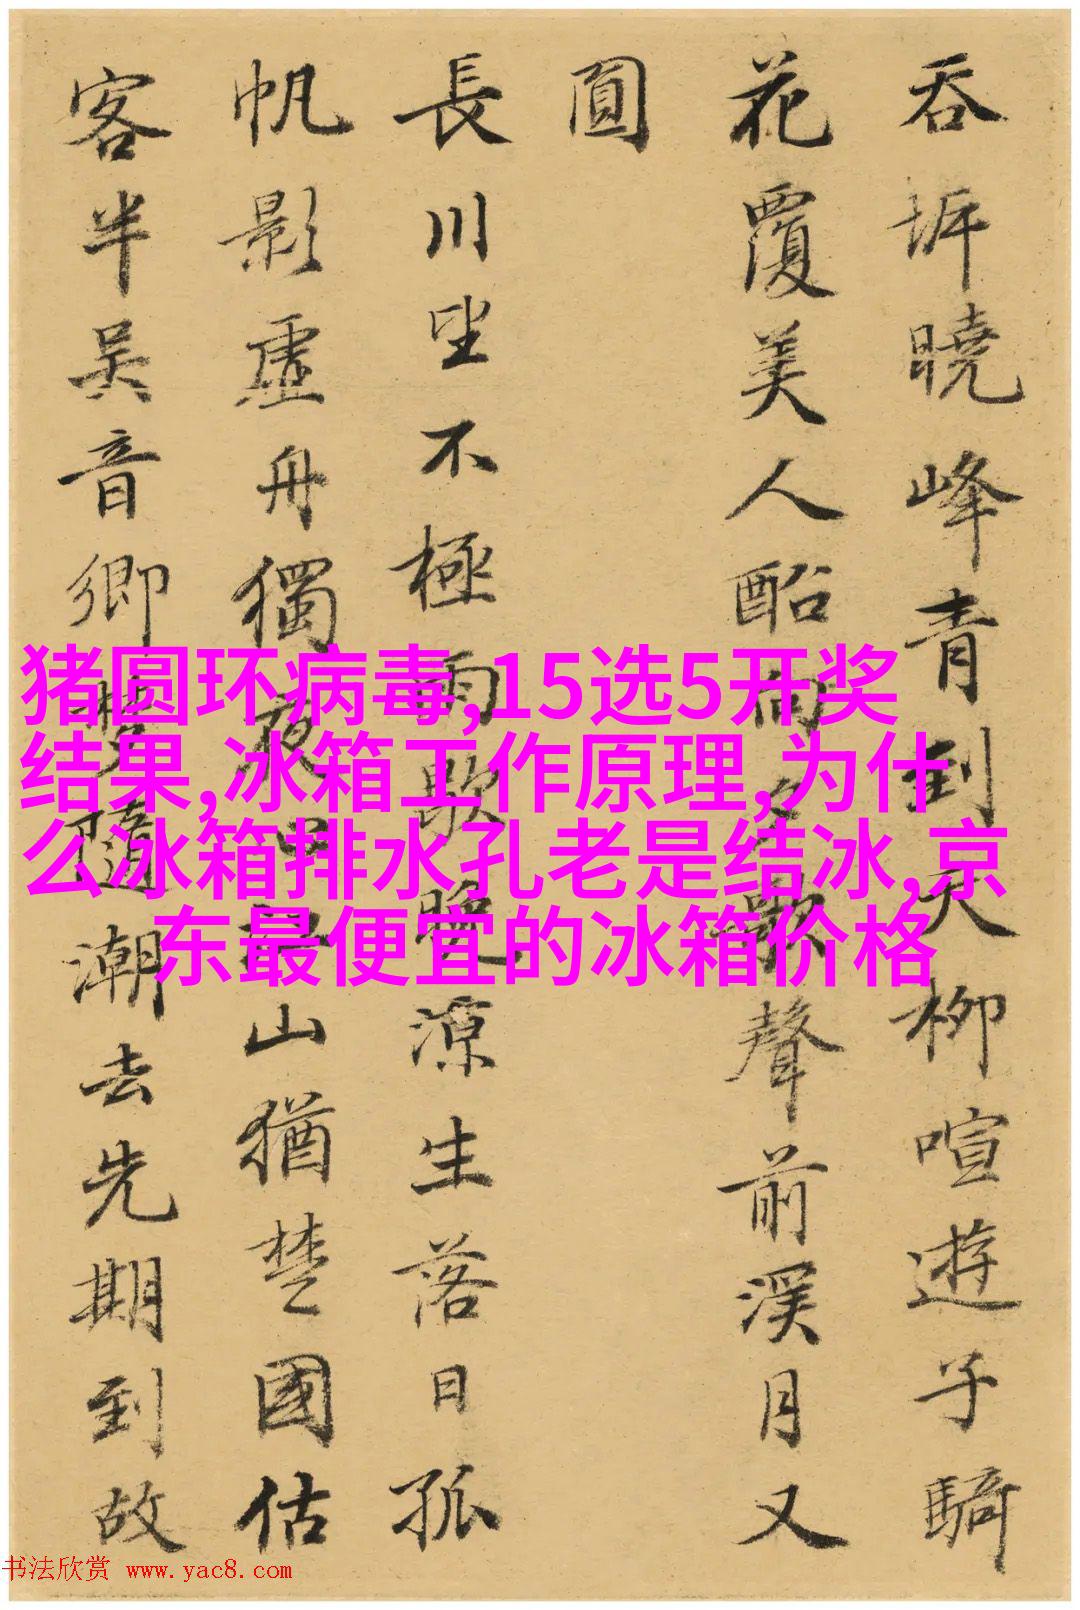 吞坼曉峰青到天柳喧遊子騎
花覆美人船向夕歌聲前溪月又
圓
長川望不極雨歇晚涼生落日孤
帆影虛舟獨夜心江山猶楚國估
客半吳音鄉夢隨潮去先期到故
猪圆环病毒,15选5开奖
结果,冰箱工作原理,为什
么冰箱排水孔老是结冰,京
东最便宜的冰箱价格
书法欣赏 www.yac8.com